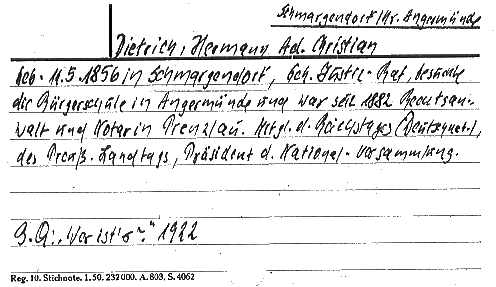 Schmargendorf Kr. Angermünde
Dietrich, Hermann Ad. Christian
Geb. 11.5.1856 in Schmargendorf, Geh. Justiz-Rat, besuchte
die Bürgerschule in Angermünde und war seit 1882 Rechtsan-
walt und Notar in Prenzlau. Mitgl. d. Reichstags (Deutschnat.),
des Preuß. Landtags, Präsident d. National-Versammlung.
"Wer ist's?" 1922
Reg. 10. Stichnote. 1. 50. 232 000. A. 803, S. 4062